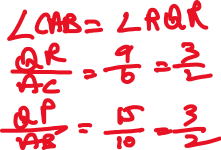 ∠CAB = ∠RQR
QR/AC = 9/6 = 3/2
QP/AB = 15/10 = 3/2